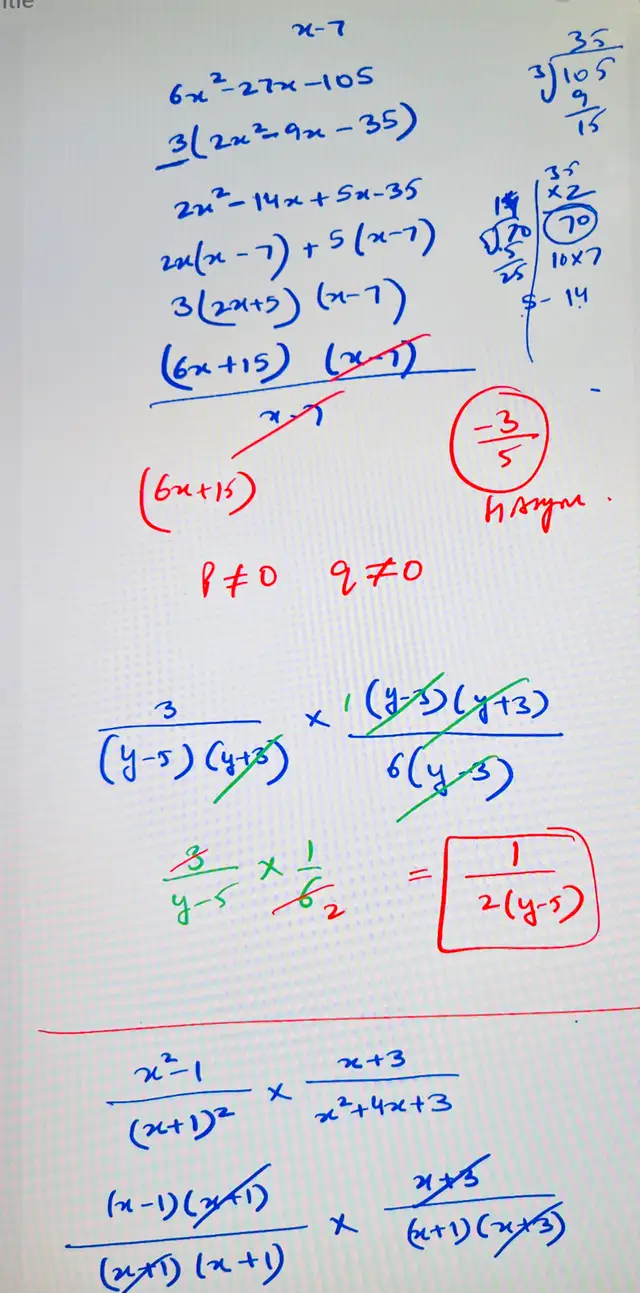 itle
x-7
6x²-27x-105
3(2x²-9x-35)
2x²-14x+5x-35
2x(x-7)+5(x-7)
3(2x+5)(x-7)
(6x+15)(x-7)
x-7
(6x+15)
35
3√105
9
15
35
x2
70
10x7
5-14
14
5√70
5
25
-3
5
H Asym.
p≠0 q≠0
3 × 1(y-3)(y+3)
(y-5)(y+3) 6(y-3)
3 × 1 = 1
y-5 6 2 2(y-5)
x²-1 × x+3
(x+1)² x²+4x+3
(x-1)(x+1) × x+3
(x+1)(x+1) (x+1)(x+3)